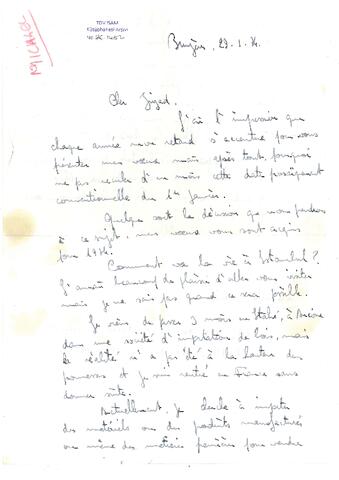 MICHAEL
TOV İSAM
Kütüphanesi Arşivi
No SAC-
23.1.74.
Cher Ziyad.
J'ai l'impression que
chaque année mon retard s'accentue pour vous
présenter mes voeux mais après tout, pourquoi
ne pas reculer d'un mois cette date
conventionnelle du 1er Janvier.
Quelque soit la décision que nous prendrons
à ce sujet, mes voeux vous sont acquis
pour 1974.
Comment va la vie à Istanbul?
J'aurais beaucoup de plaisir d'aller vous visiter
mais je ne sais pas quand ce sera possible.
Je viens de passer 3 mois en Italie, à Ancône
dans une société d'importation de bois, mais
la réalité n'a pas été à la hauteur des
promesses et je suis rentré en France sans
donner suite.
Actuellement, je cherche à importer
des matériels ou des produits manufacturés
ou même des matières premières pour vendre